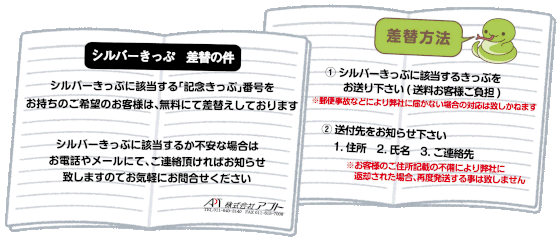 シルバーきっぷ 差替の件
シルバーきっぷに該当する「記念きっぷ」番号を
お持ちのご希望のお客様は、無料にて差替えしております
シルバーきっぷに該当するか不安な場合は
お電話やメールにて、ご連絡頂ければお知らせ
致しますのでお気軽にお問合せください
APT 株式会社 アプト
差替方法
① シルバーきっぷに該当するきっぷを
お送り下さい ( 送料お客様ご負担 )
※郵便事故などにより弊社に届かない場合の対応は致しかねます
② 送付先をお知らせ下さい
1. 住所 2. 氏名 3. ご連絡先
※お客様のご住所記載の不備により弊社に
返却された場合、再度発送する事は致しません